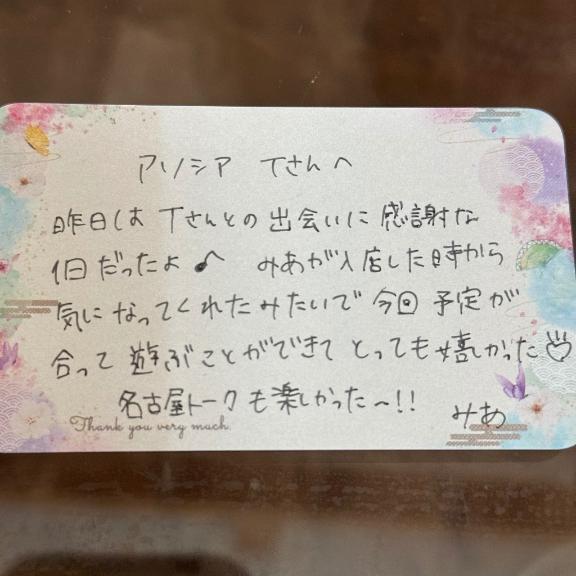 アソシア Tさんへ
昨日は Tさんとの出会いに感謝な
1日だったよ♪ みあが入店した時から
気になってくれたみたいで 今回 予定が
合って 遊ぶことができて とっても嬉しかった♡
名古屋トークも楽しかった〜!!
Thank you very much.
みあ